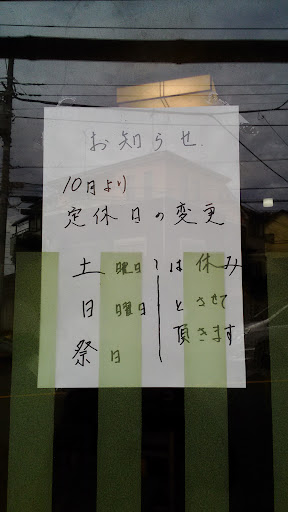 お知らせ
10月より
定休日の変更
土曜日
日曜日
祭日
は休み
とさせて
頂きます